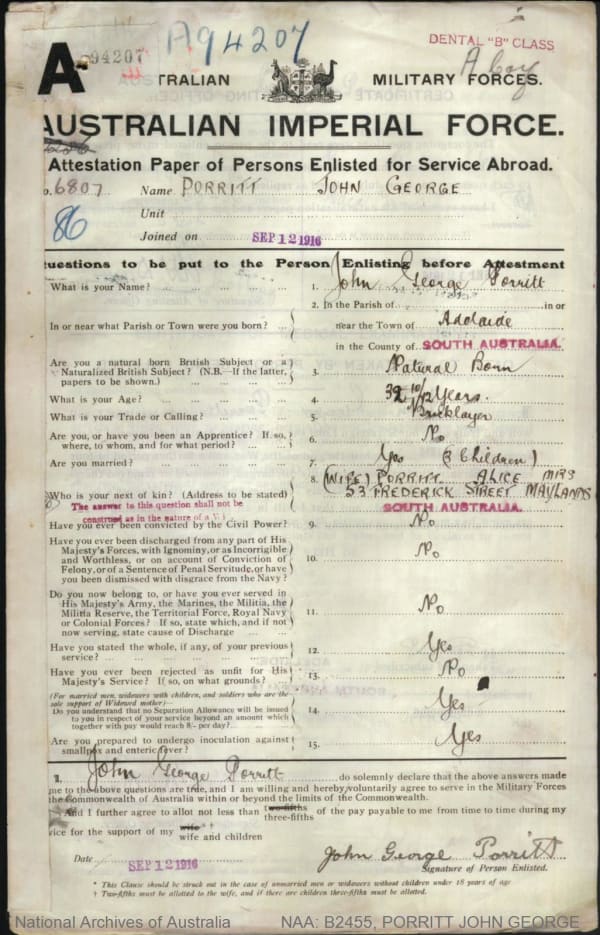 A94207
94207
DENTAL "B" CLASS
A
TRALIAN MILITARY FORCES.
AUSTRALIAN IMPERIAL FORCE.
Attestation Paper of Persons Enlisted for Service Abroad.
o. 6807 Name PORRITT JOHN GEORGE
86
Unit
Joined on SEP 12 1916
uestions to be put to the Person Enlisting before Attestment
What is your Name? 1. John George Porritt
2. In the Parish of in or
In or near what Parish or Town were you born? near the Town of Adelaide
in the County of SOUTH AUSTRALIA.
Are you a natural born British Subject or a
Naturalized British Subject? (N.B.—If the latter, 3. Natural Born
papers to be shown.)
What is your Age? 4. 32 10/12 Years.
What is your Trade or Calling? 5. Bricklayer
Are you, or have you been an Apprentice? If so, 6. No
where, to whom, and for what period?
Are you married? 7. Yes (3 Children)
8. (WIFE) PORRITT ALICE MRS
Who is your next of kin? (Address to be stated) 53 FREDERICK STREET MAYLANDS
The answer to this question shall not be SOUTH AUSTRALIA.
construed as in the nature of a
Have you ever been convicted by the Civil Power? 9. No
Have you ever been discharged from any part of His
Majesty's Forces, with Ignominy, or as Incorrigible
and Worthless, or on account of Conviction of 10. No
Felony, or of a Sentence of Penal Servitude, or have
you been dismissed with disgrace from the Navy?
Do you now belong to, or have you ever served in
His Majesty's Army, the Marines, the Militia, the
Militia Reserve, the Territorial Force, Royal Navy 11. No
or Colonial Forces? If so, state which, and if not
now serving, state cause of Discharge
Have you stated the whole, if any, of your previous 12. Yes
service?
Have you ever been rejected as unfit for His 13. No
Majesty's Service? If so, on what grounds?
(For married men, widowers with children, and soldiers who are the
sole support of Widowed mother)—
Do you understand that no Separation Allowance will be issued 14. Yes
to you in respect of your service beyond an amount which
together with pay would reach 8/- per day?
Are you prepared to undergo inoculation against 15. Yes
smallpox and enteric fever?
I, John George Porritt do solemnly declare that the above answers made
me to the above questions are true, and I am willing and hereby voluntarily agree to serve in the Military Forces
the Commonwealth of Australia within or beyond the limits of the Commonwealth.
And I further agree to allot not less than two-fifths
three-fifths of the pay payable to me from time to time during my
vice for the support of my wife
wife and children
Date SEP 12 1916 John George Porritt
Signature of Person Enlisted.
* This Clause should be struck out in the case of unmarried men or widowers without children under 18 years of age
† Two-fifths must be allotted to the wife, and if there are children three-fifths must be allotted.
National Archives of Australia NAA: B2455, PORRITT JOHN GEORGE